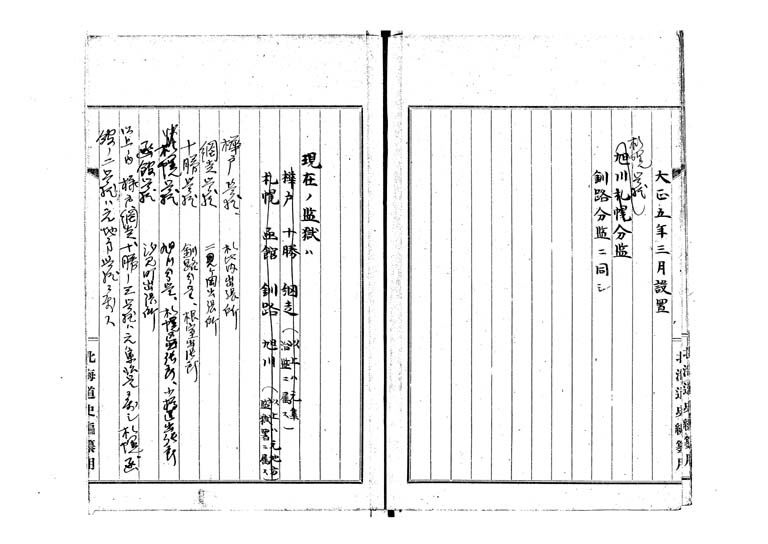 大正五年三月設置
札幌監獄
旭川札幌分監
釧路分監ニ同シ
北海道史編纂用
現在ノ監獄ハ
樺戸 十勝 網走(以上ハ元集治監ニ属ス)
札幌 函館 釧路 旭川(以上ハ元地方監獄署ニ属ス)
樺戸監獄、
網走監獄 二見ヶ岡出張所
十勝監獄 釧路分監、根室出張所
札幌監獄 旭川分監、札幌出張所、小樽出張所
函館監獄
以上ノ内樺戸網走十勝ノ三監獄ハ元集治監ニ属シ札幌函
館ノ二監獄ハ元地方監獄ニ属ス
北海道史編纂用